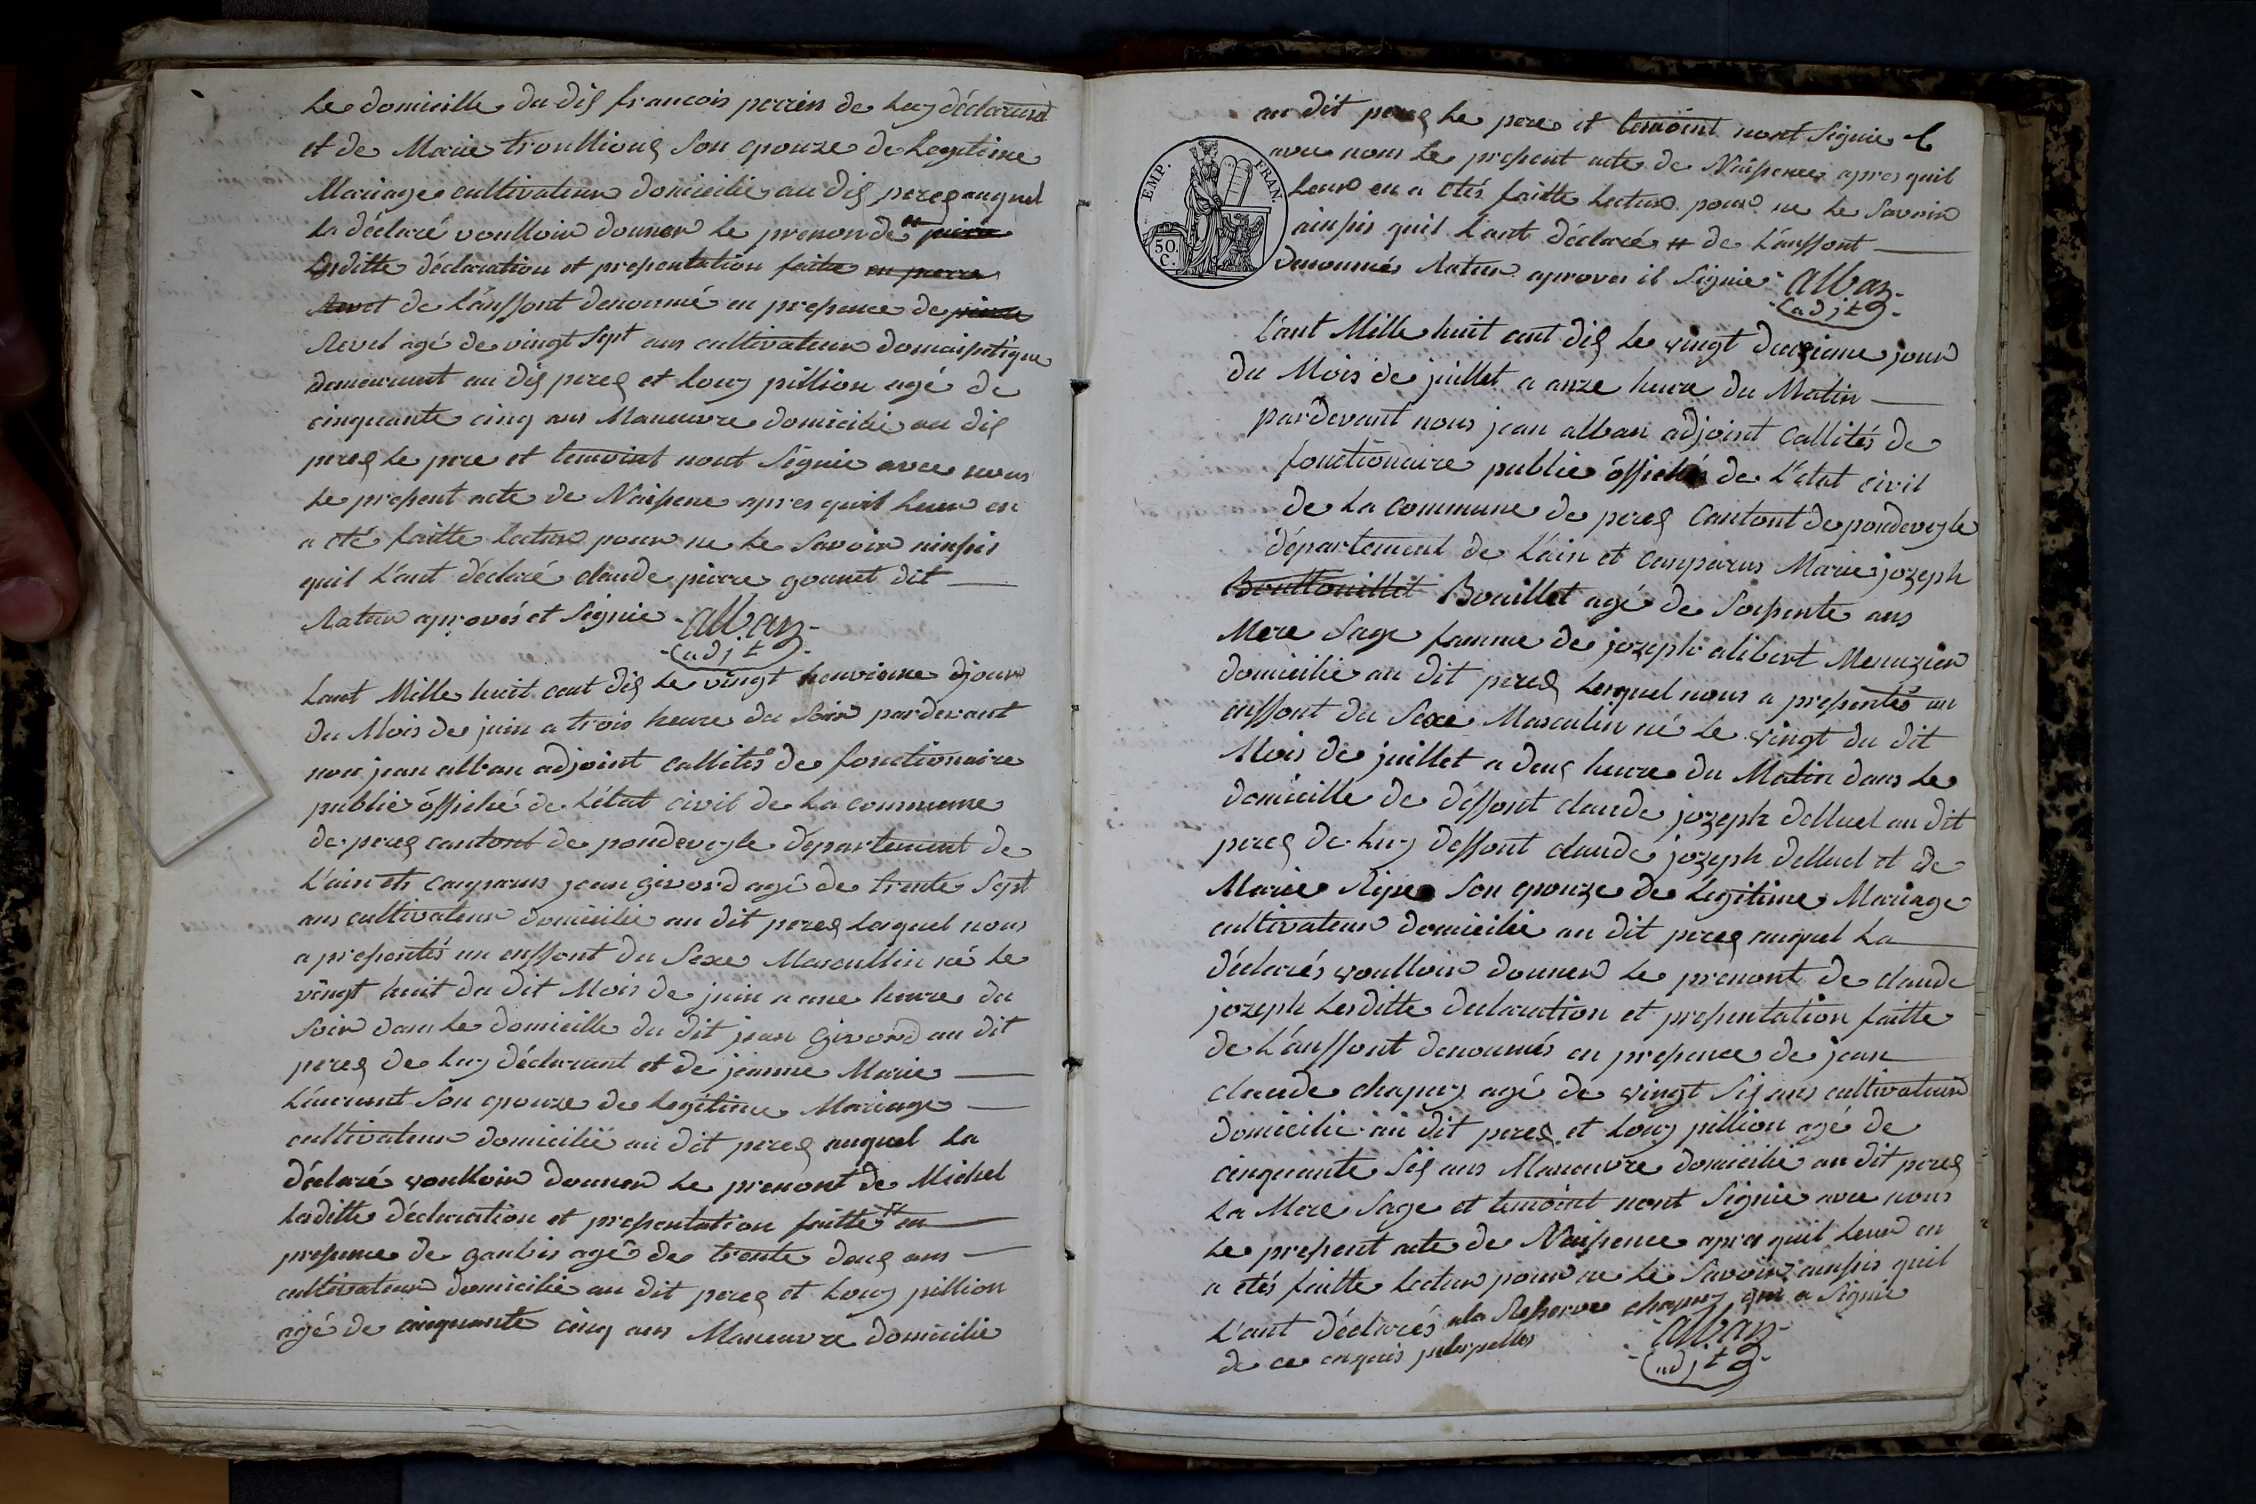 Le domicille du dis francois perrin de Luy déclarend
et de Marie troullioug Son epouze de Legitime
Mariage cultivateur domicilie au dis peres auquel
La déclaré voulloir donner Le prenon de # pierre
Lesditte déclaration et presentation faite en pierre
Revet de L'anffont denommé en presence de pierre
Revel agé de vingt Sept ans cultivateur domaistique
demeurant au dis peres et Louy pillion agé de
cinquante cinq ans Maneuvre domicilie au dis
peres Le pere et temoint nont Signie avec nous
Le present acte de Naissene apres quil Leur en
a eté faitte Lectur pour ne Le Savoir ainsis
quil L'ant déclaré claude pierre gounet dit
Ratur aprovés et Signie alban
adjt
Lant Mille huit cent dis Le vingt neuvieme djour
du Mois de juin a trois heure du Soir pardevant
nou jean alban adjoint callités de fonctionaire
public óffiché de L'état civil de La commune
de peres cantont de pondeveyle département de
L'ain et comparus jean givord agé de trente Sept
ans cultivateur domicilie au dit peres Lesquel nous
a presentés un enffont du Sexe Mascullin né Le
vingt huit du dit Mois de juin a une heure du
Soir dans Le domicille du dit jean Givord au dit
peres de Luy déclarant et de jeanne Marie
Laurent Son epouze de Legitime Mariage
cultivateur domicilié au dit peres auquel La
déclaré voulloir donner Le prenont de Michel
Laditte déclaration et presentation faitte # en
presence de gaulis agé de trente deus ans
cultivateur domicilie au dit peres et Louy pillion
agé de cinquante cinq ans Maneuvre domicilie
au dit peres Le pere et temoint nont Signie
avec nous Le present acte de Naissence apres quil
Leur en a etés faitte Lectur pour ne Le Savoir
ainsis quil L'ant déclaré # de L'anffont
denommés Ratur aprovés et Signie alban
adjt
EMP. FRAN.
50. C.
L'ant Mille huit cent dis Le vingt deusieme jour
du Mois de juillet a onze heure du Matin
pardevant nous jean alban adjoint Callités de
fonctionaire public óffiché de L'état civil
de La commune de peres Cantont de pondeveyle
département de L'ain et comparus Marie jozeph
Bouillet agé de Soissente ans
Mere Sage famme de jozeph alibert Menuzier
domicilie au dit peres Lesquel nous a presentés un
enffont du Sexe Masculin né Le vingt du dit
Mois de juillet a deus heure du Matin dans Le
domicille de déffont claude jozeph delluel au dit
peres de Luy deffont claude jozeph delluel et de
Marie Ripe Son epouze de Legitime Mariage
cultivateur domicilie au dit peres auquel La
déclarés voulloir donner Le prenont de claude
jozeph Lesditte declaration et presentation faitte
de L'anffont denommés en presence de jean
claude chapuy agé de vingt Sis ans cultivateur
domicilie au dit peres et Louy pillion agé de
cinquante Sis ans Maneuvre domicilie au dit peres
La Mere Sage et temoint nont Signie avec nous
Le present acte de Naissence apres quil Leur en
a etés faitte Lectur pour ne Le Savoir ainsis quil
L'ant déclarés a la Reserve chapuy qui a Signie
de ce enquis alban
adjt